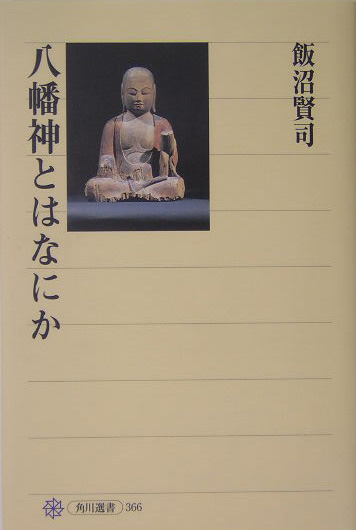 飯沼賢司
八幡神とはなにか
角川選書 366